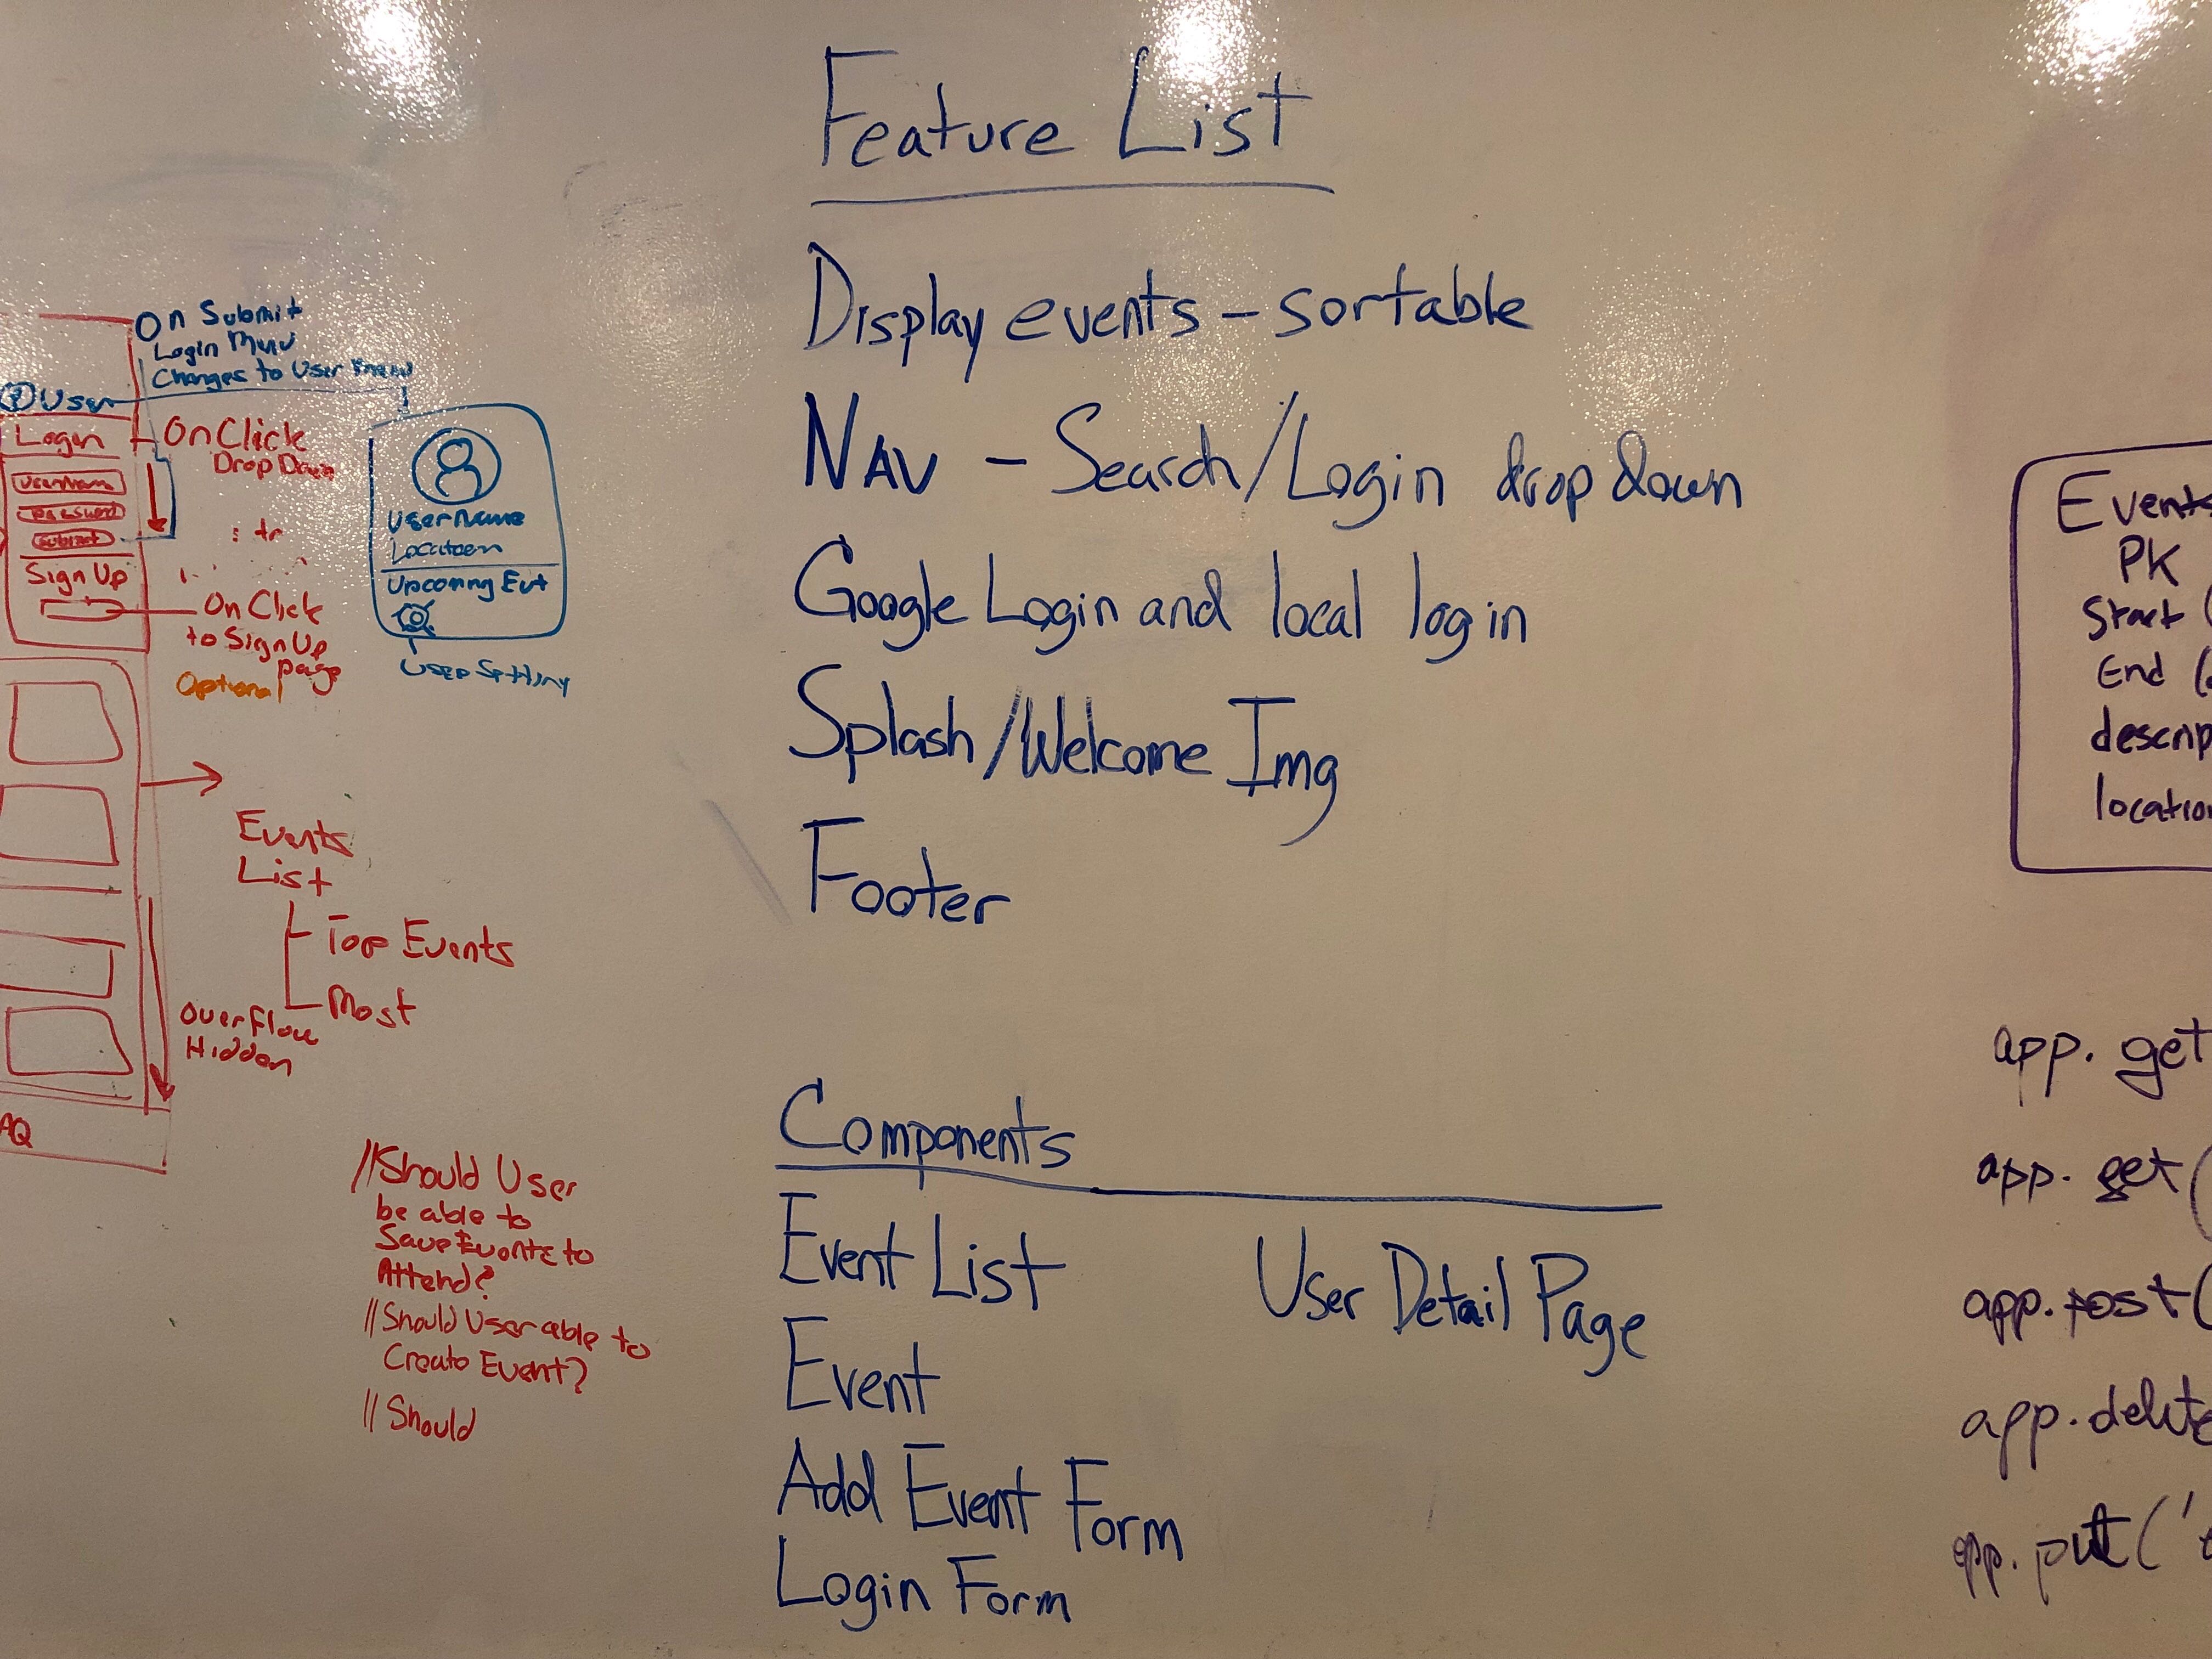 On Submit
Login Menu
Changes to User Menu
User
Login
OnClick
Drop Down
username
password
submit
Sign Up
On Click
to Sign Up
page
Optional
UserName
Location
Upcoming Evt
User Setting
Events
List
Top Events
Most
Overflow
Hidden
AQ
//Should User
be able to
Save Events to
Attend?
//Should User able to
Create Event?
//Should
Feature List
Display events - sortable
NAV - Search/Login drop down
Google Login and local login
Splash/Welcome Img
Footer
Components
Event List
User Detail Page
Event
Add Event Form
Login Form
Events
PK
Start (
End (
descrip
location
app.get
app.get(
app.post(
app.delete
app.put('